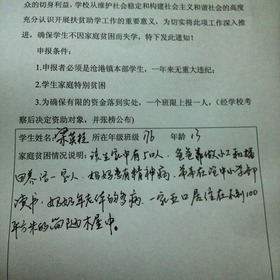 众的切身利益,学校从维护社会稳定和构建社会主义和谐社会的高度
充分认识开展扶贫助学工作的重要意义,为切实将此项工作深入推
进,确保学生不因家庭贫困而失学,特下发此通知!
申报条件:
1.申报者必须是沧港镇本部学生,一年来无重大违纪;
2.学生家庭特别贫困
3.为确保有限的资金落到实处,一个班限上报一人,(经学校考
察后决定资助对象,并张榜公布)
学生姓名: 所在年级班级 76 年龄 13
家庭贫困情况说明:该生家中有5口人,爸爸靠做小工和种
田养活一家人,妈妈患有精神病,弟弟在沧中小学部
读书,奶奶年老体弱多病,一家五口居住在不到100
平方米的简陋木屋中。